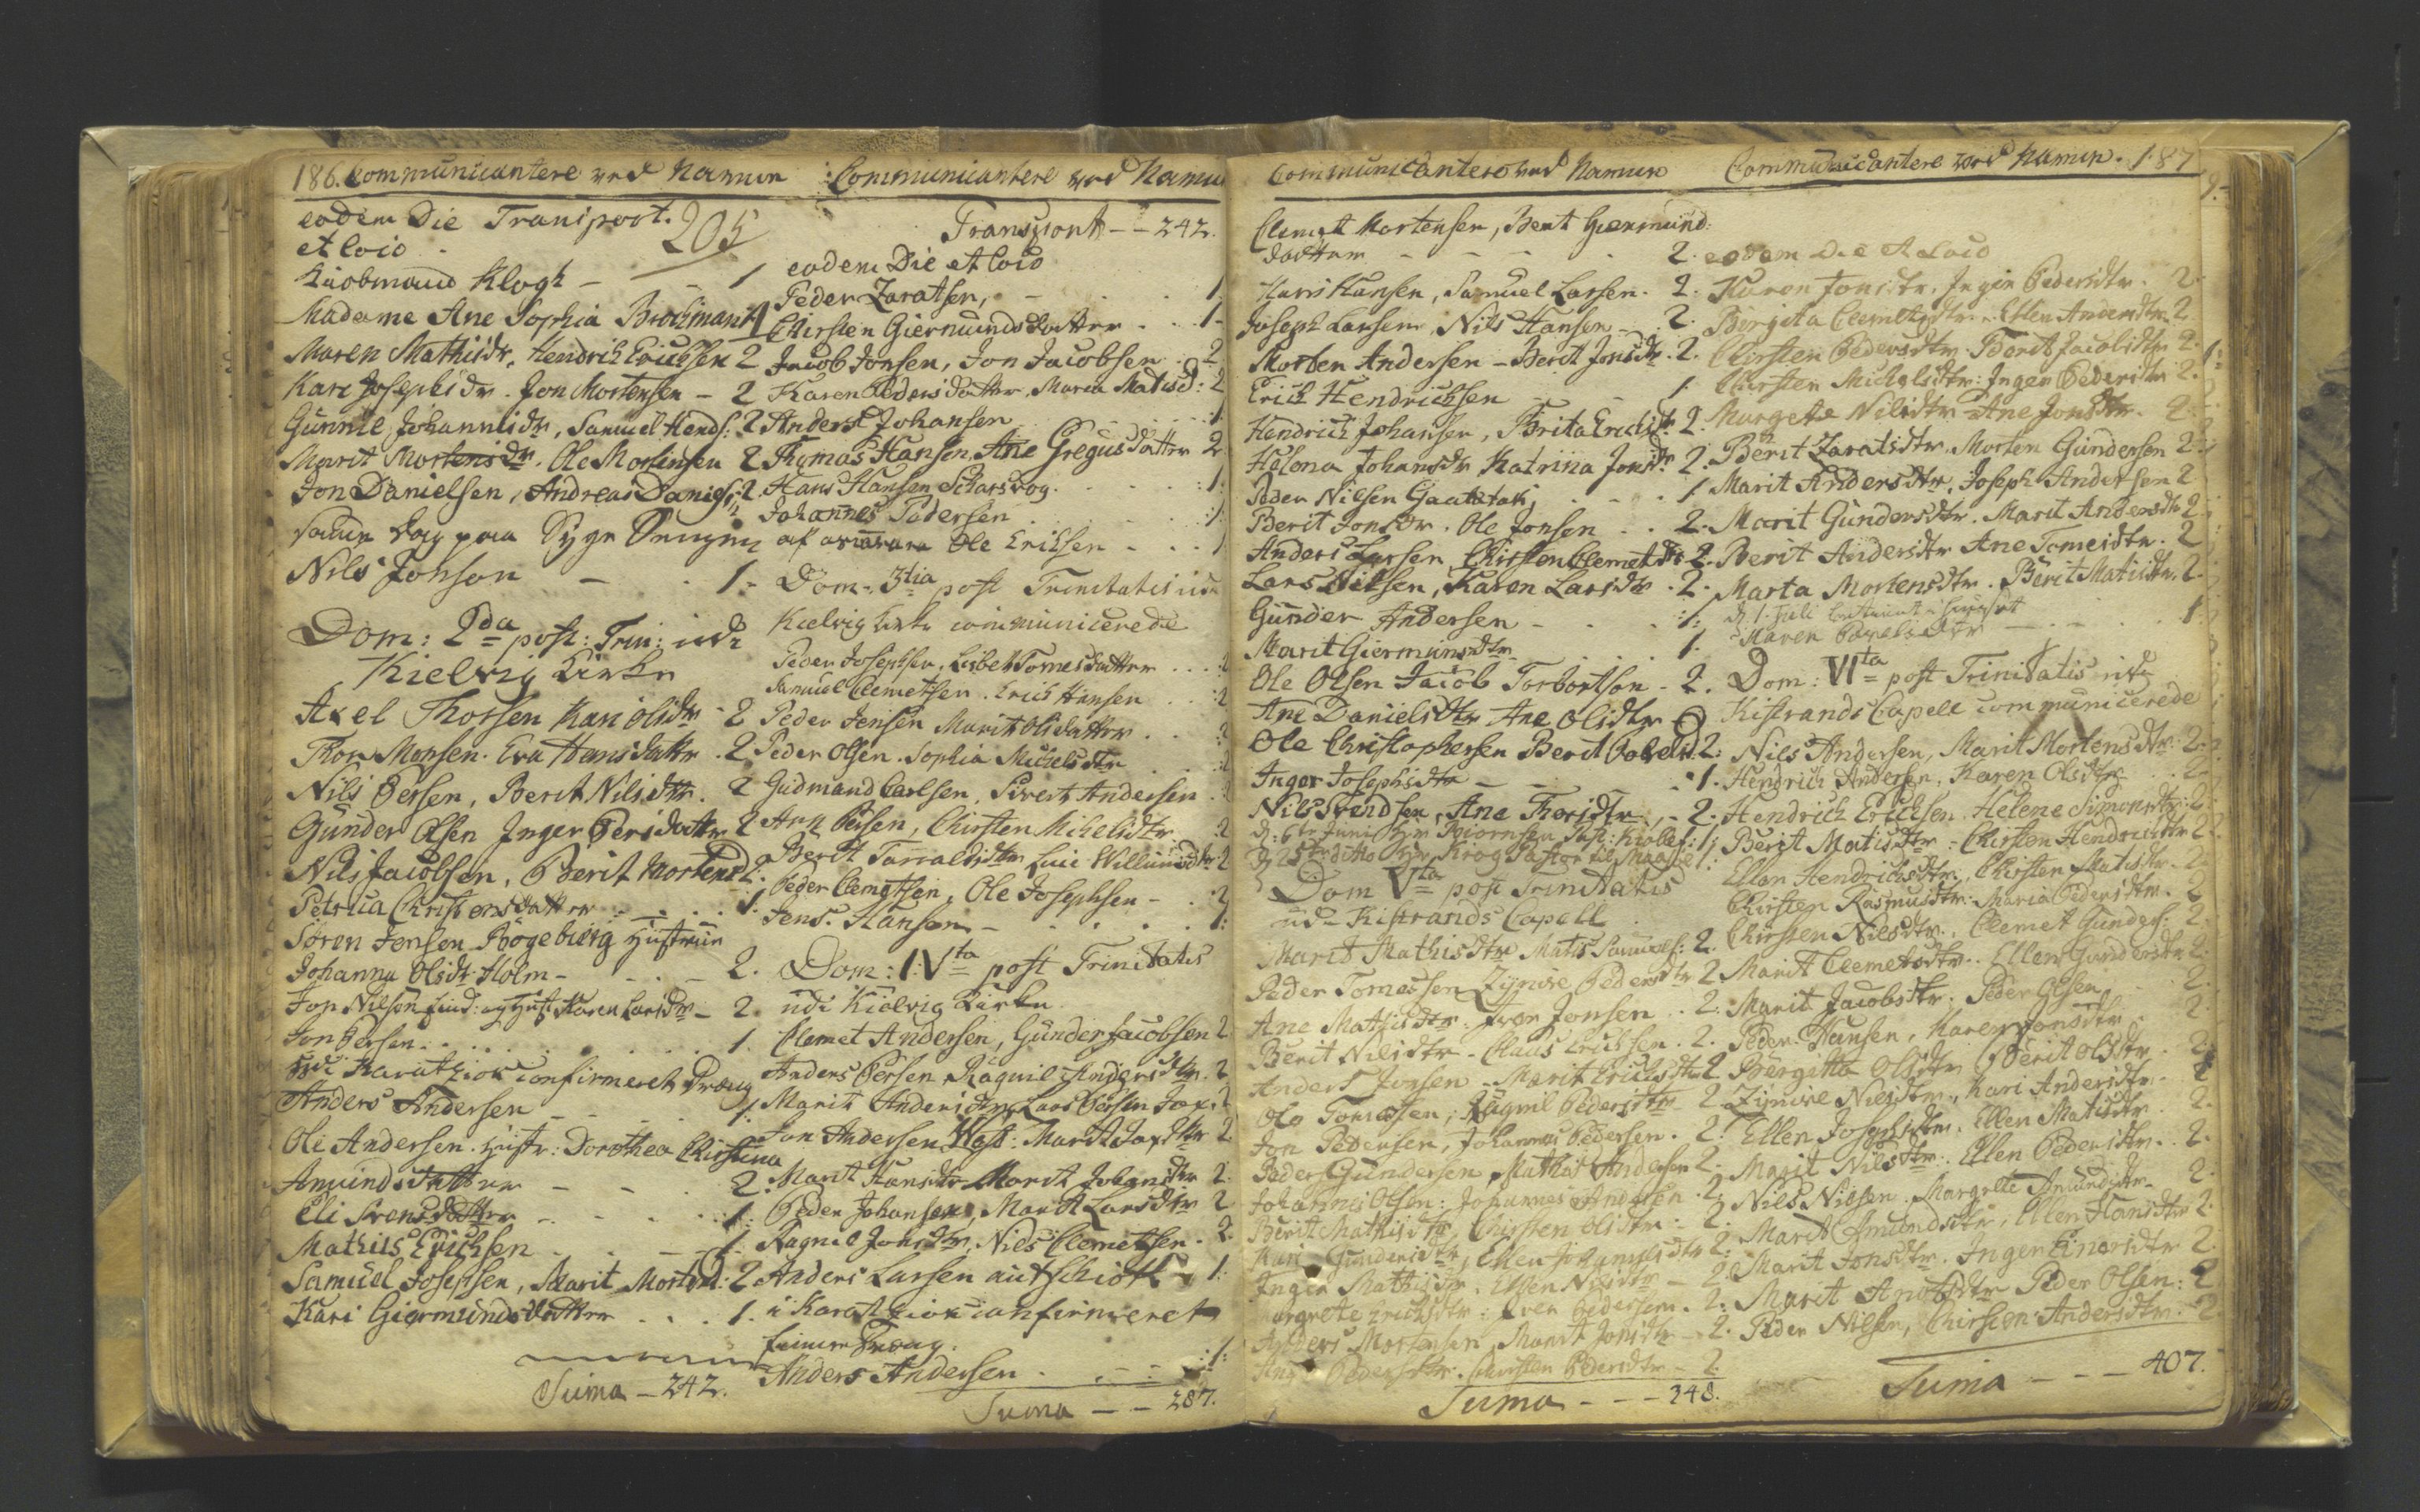 186. Communicantere ved Namun
eodem Die Transport. 205
et loco
Kiøbmand Klogh - - 1
Madame Ane Sophia Brochmann 1
Maren Mathisdr. Hendrich Erichsen 2
Kari Josephsdr. Jon Mortensen - 2
Gunnil Johannisdr, Samuel Hends: 2
Marit Mortensdr. Ole Mortensen 2
Jon Danielsen, Andreas Daniels: 2.
samme dag paa Syge
Nils Jonson - 1.
Dom: 2da post: Trin: udi
Kielvig Kirke
Axel Thorsen Kari Olsdtr - 2
Thor Monsen. Eva Hansdatter. 2
Nils Persen, Berit Nilsdtr. 2
Gunder Olsen Inger Persdatter 2
Nils Jacobsen, Berit Mortensd 2.
Petrica Christensdatter 1.
Søren Jensen Bogebierg Hustrue
Johanna Olsdr Holm - - - 2.
Jon Nilsen Find: og Hust: Karen Larsdr - 2.
Jon Persen . . . 1.
udi Karatziok confirmeret Dreng
Anders Andersen - - - 1.
Ole Andersen. Hustr: Dorothea Chirstina
Amundsdatter - - - 2.
Eli Svensdatter - - - 1.
Mathis Erichsen - - - 1.
Samuel Josephsen, Marit Mortensd: 2
Kari Giermundsdatter . . . 1.
Suma - 242.
Communicantere ved Namu
Transport - - 242.
eodem Die et loco
Peder Zaratsen, - . . 1.
Chirsten Giermundsdatter . . 1.
Jacob Jonsen, Jon Jacobsen . 2
Karen Pedersdatter, Maria Matisd: 2
Anders Johansen . . 1
Thomas Hansen, Ane Gregusdatter 2
Hans Hansen Scharsvog. . . 1.
Johannes Pedersen . . 1.
af Ole Erichsen - . . 1
Dom. 3tia post Trinitatis udi
Kielvig Kirke communicerede
Peder Josephsen. Lisbet Tomesdatter . . . 2
Samuel Clemetsen. Erich Hansen . . 2
Peder Jensen Marit Olsdatter . . . 2
Peder Olsen. Sophia Michelsdtr . . 2
Gudmand Carlsen, Sivert Andersen . 2
Persen, Chirsten Michelsdtr . 2
Berit Tarraldsdtr Lucie Willumsdtr 2
Peder Clemetsen, Ole Josephsen - . 2
Jens. Hansen - . . . 1.
Dom: IVta post Trinitatis
udi Kielvig Kirke
Clemet Andersen, Gunder Jacobsen 2
Anders Persen Ragnil Andersdtr. 2
Marit Andersdtr, Lars Persen 2
Jon Andersen Marit 2
Marit Hansdtr Marit Johansdtr 2.
Peder Johansen, Marit Larsdtr 2
Ragnil Jonsdtr, Nils Clemetsen. 2.
Anders Larsen 1.
i Karatziok confirmeret
Anders Andersen . . - . 1.
Suma - - 287.
Communicantere ved Namun
Clemet Mortensen, Berit Giermund:
datter - - - . 2.
Hans Hansen, Samuel Larsen. 2.
Joseph Larsen, Nils Hansen - . 2.
Morten Andersen - Berit Jonsdr. 2.
Erich Hendrichsen - - 1.
Hendrich Johansen, Brita Erichsdr. 2.
Helena Johansdr Katrina Jonsdr. 2.
Peder Nilsen . . . 1.
Berit Jonsdr. Ole Jonsen . . 2.
Anders Larsen, Chirsten Clemetsdr. 2.
Lars Nilsen, Karen Larsdtr . 2.
Gunder Andersen - - . 1.
Marit Giermunsdtr . . . 1.
Ole Olsen Jacob Torbortson - 2.
Ane Danielsdtr Ane Olsdtr - 2
Ole Christophersen Berit 2.
Inger Josephsdtr - - . 1.
Nils Svendsen, Ane Thorsdtr, - 2.
Dom Vta post Trinitatis
udi Kistrands Capell
Marit Mathisdtr Matis Samuels: 2.
Peder Tomassen Zynive Pedersdtr 2
Ane Mathisdtr. Jonsen . . 2.
Berit Nilsdtr - Claus Erichsen. 2.
Anders Jonsen - Marit Erichsdtr 2
Ole Tomassen, Ragnil Pedersdtr - 2
Jon Pedersen, Johannes Pedersen. 2.
Peder Gundersen, Mathis Andersen 2.
Johannis Olsen: Johannes Andersen . 2.
Berit Mathisdtr, Chirsten Olsdtr - 2.
Kari Gundersdtr, Ellen Johannesdtr 2.
Inger Mathisdr. Ellen Nilsdtr - 2.
Margrete Erichsdtr: Iver Pedersen. 2.
Anders Mortensen, Marit Jonsdtr - 2.
Pedersdtr. Chirsten Pedersdtr - 2.
Suma - - - 348.
Communicantere ved Namun. 187
eodem Die et Loco
Karen Jonsdtr. Inger Pedersdtr. 2.
Birgita Clemetsdtr. Ellen Andersdtr. 2
Chirsten Pedersdtr. Berit Jacobsdtr. 2.
Chirsten Michelsdtr: Inger Pedersdtr 2.
Margete Nilsdtr - Ane Jonsdtr. 2.
Berit Zaratsdtr. Morten Gundersen 2.
Marit Andersdtr. Joseph Andersen 2
Marit Gundersdtr. Marit Andersdtr 2.
Berit Andersdtr Ane Tomesdtr. 2
Marta Mortensdtr. Berit Matisdtr. 2.
Maren - . - . 1.
Dom: VIta post Trinitatis udi
Kistrands Capell communicerede
Nils Andersen, Marit Mortensdtr. 2.
Hendrich Andersen, Karen Olsdtr . 2.
Hendrich Erichsen. Helene Simonsdtr. 2.
Berit Matisdtr - Chirsten Hendrichsdtr 2
Ellen Hendrichsdtr. Chirsten Matisdtr. 2.
Chirsten Rasmusdtr. Maria Pedersdtr. 2
Chirsten Nilsdtr. Clemet Gunders: 2.
Marit Clemetsdtr. Ellen Gundersdtr 2.
Marit Jacobsdtr. Peder Olsen . 2.
Peder Hansen, Karen Jonsdtr . 2.
Bergitta Olsdtr, Berit Olsdtr . 2.
Zynive Nilsdtr, Kari Andersdtr . 2
Ellen Josephsdtr. Ellen Matisdtr. 2.
Marit Nilsdtr. Ellen Pedersdtr. 2.
Nils Nilsen. Margete Amundsdtr - 2.
Marit Amundsdtr, Ellen Hansdtr 2.
Marit Jonsdtr. Inger Einersdtr 2.
Marit Peder Olsen: 2
Peder Nilsen, Chirsten Andersdtr. 2
Suma - - - 407.